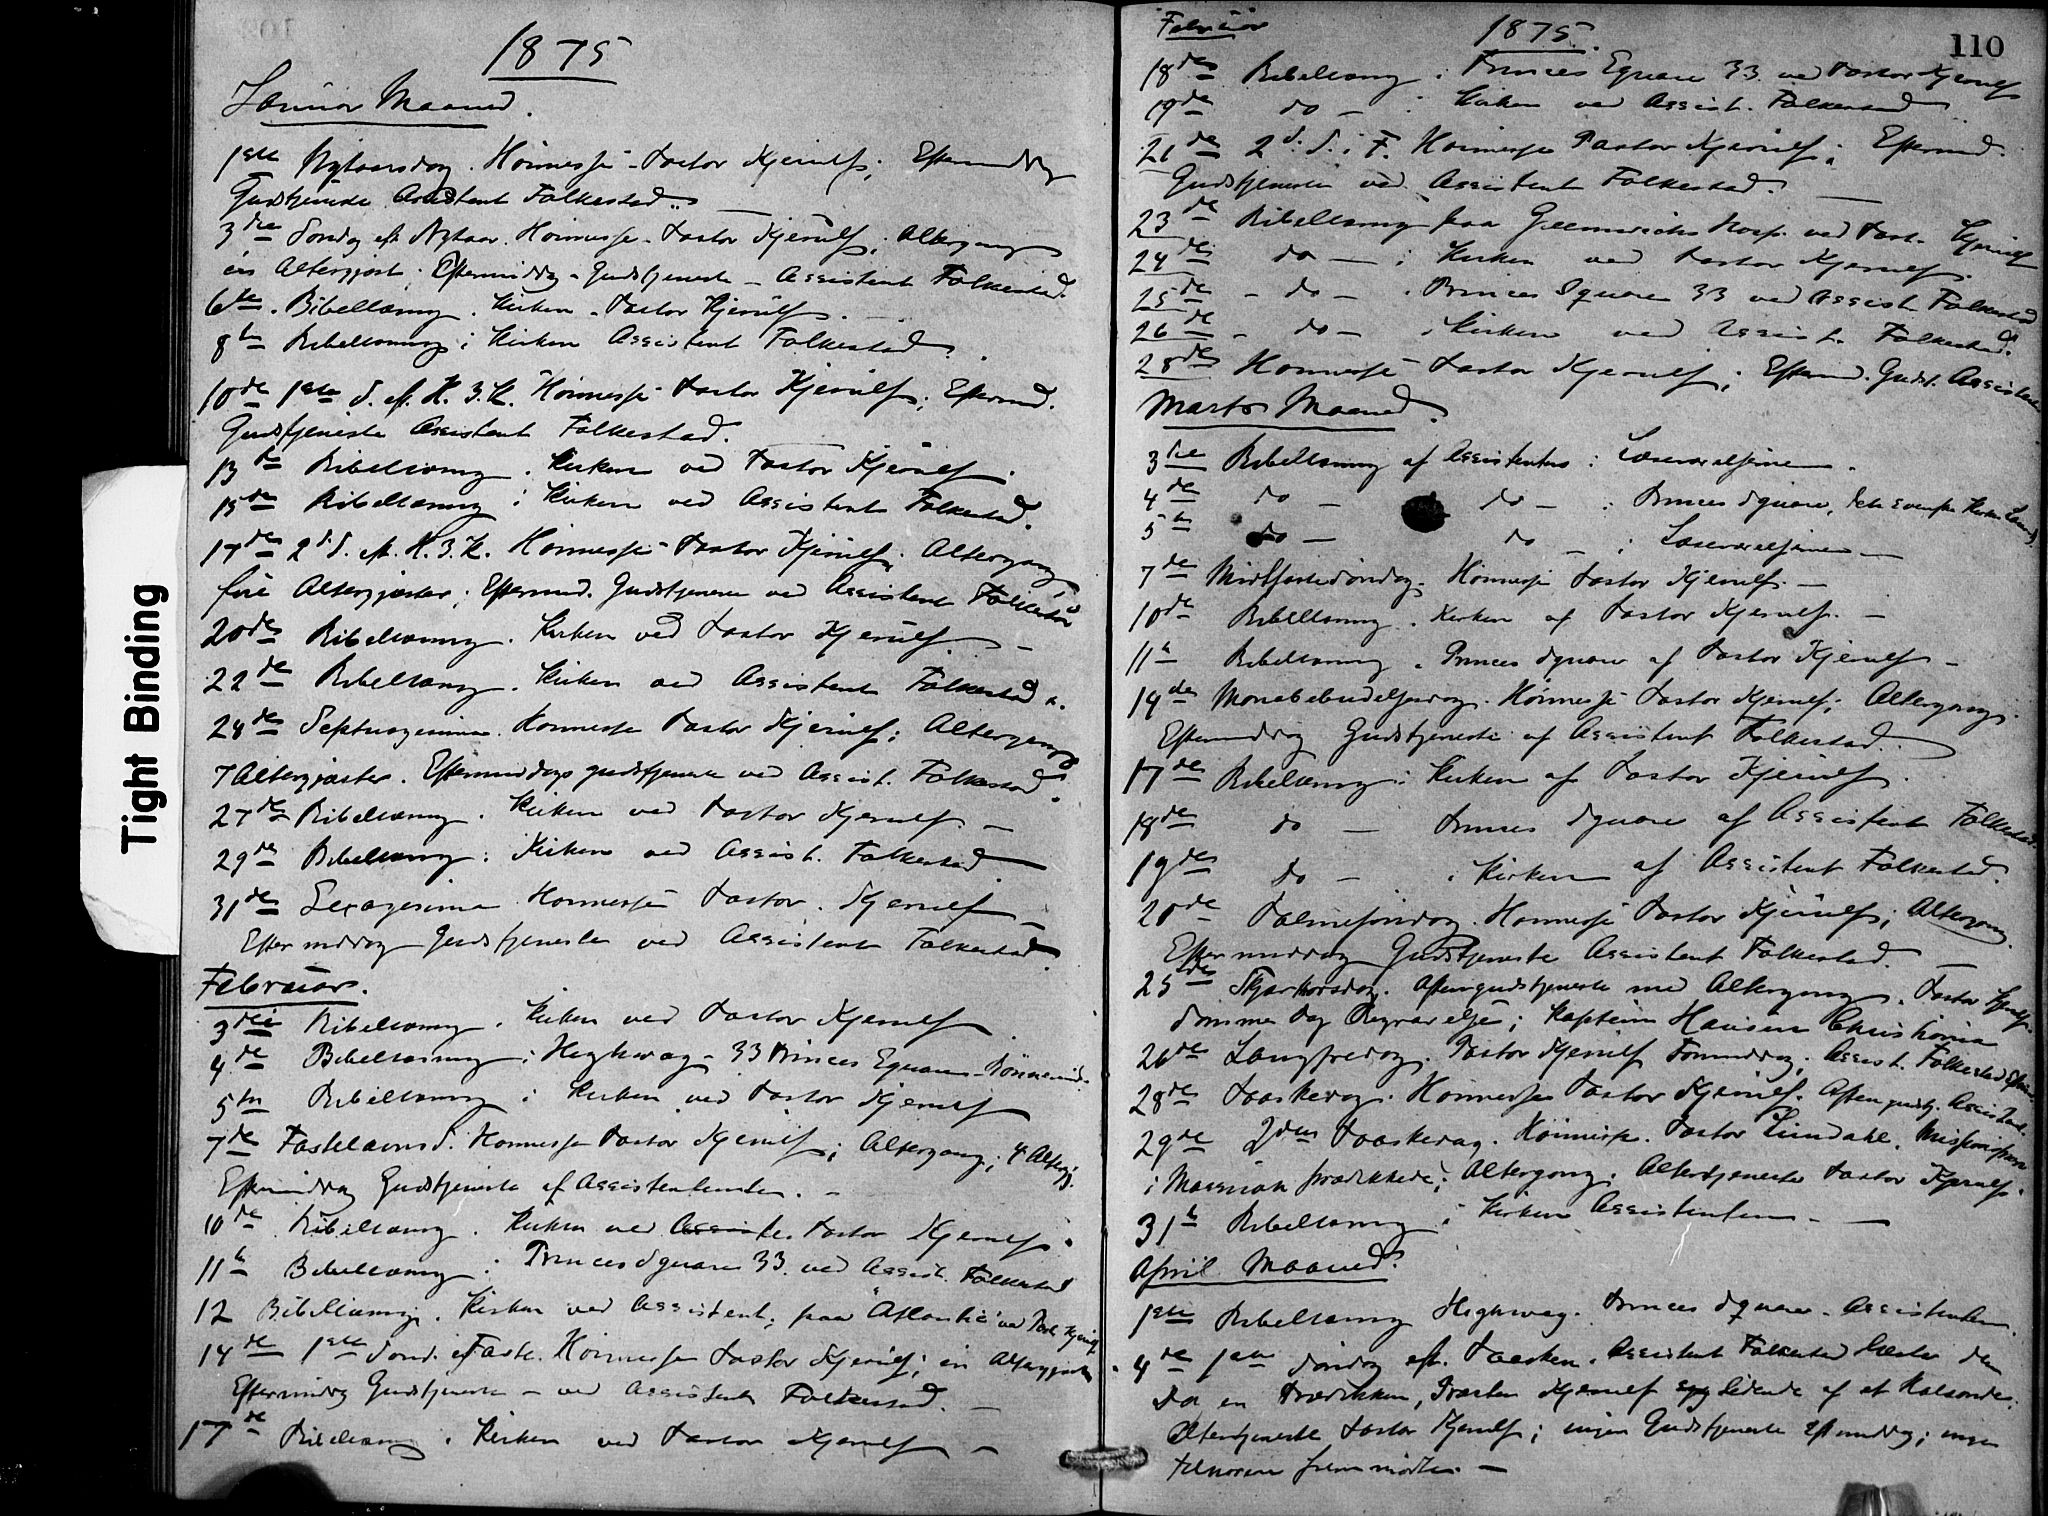 1875
Januar Maaned.
1ste Nytaarsdag. Höimesse Pastor Kjerulf; Eftermiddag
Gudstjeneste Assistent Folkestad.
3die Søndag eft Nytaar. Höimesse Pastor Kjerulf; Altergang
én Altergjest; Eftermiddag Gudstjeneste Assistent Folkestad.
6te Bibellæsning i Kirken Pastor Kjerulf.
8de Bibellæsning i Kirken Assistent Folkestad.
10de 1ste S. eft. H. 3. K. Höimesse Pastor Kjerulf; Eftermid.
Gudstjeneste Assistent Folkestad.
13de Bibellæsning i Kirken ved Pastor Kjerulf.
15de Bibellæsning i Kirken ved Assistent Folkestad.
17de 2d. S. eft. H. 3. K. Höimesse Pastor Kjerulf; Altergang
fire Altergjester; Eftermid. Gudstjeneste ved Assistent Folkestad
20de Bibellæsning i Kirken ved Pastor Kjerulf. —
22de Bibellæsning i Kirken ved Assistent Folkestad.
24de Septuagesima. Höimesse Pastor Kjerulf; Altergang
7 Altergjester. Eftermiddags gudstjeneste ved Assist. Folkestad.
27de Bibellæsning i Kirken ved Pastor Kjerulf. —
29de Bibellæsning i Kirken ved Assist. Folkestad
31de Sexagesima Höimesse Pastor Kjerulf —
Eftermiddag Gudstjeneste ved Assistent Folkestad.
Februar.
3die Bibellæsning i Kirken ved Pastor Kjerulf
4de Bibellæsning i Highway 33 Princes Square
5te Bibellæsning i Kirken ved Pastor Kjerulf
7de Fastelavns S. Höimesse Pastor Kjerulf; Altergang; 4 Alterg.
Eftermiddag Gudstjeneste af Assistenten. —
10de Bibellæsning i Kirken ved Pastor Kjerulf.
11te Bibellæsning i Princes Square 33 ved Assist. Folkestad
12 Bibellæsning i Kirken ved Assistent; paa "Atlantic" ved Past Kjerulf
14de 1ste Sønd. i Faste. Höimesse Pastor Kjerulf; én Altergjest
Eftermiddag Gudstjeneste — ved Assistent Folkestad. —
17de Bibellæsning i Kirken ved Pastor Kjerulf —
Februar
1875.
110
18de Bibellæsning i Princes Square 33 ved Pastor Kjerulf
19de do — i Kirken ved Assist. Folkestad
21de 2d. S. i F. Höimesse Pastor Kjerulf; Eftermid.
Gudstjeneste ved Assistent Folkestad. —
23de Bibellæsning paa Greenwichs Hosp. ved Past. Kjerulf
24de do — i Kirken ved Pastor Kjerulf.
25de — do — i Princes Square 33 ved Assist. Folkestad
26de — do — i Kirken ved Assist. Folkestad.
28de Höimesse Pastor Kjerulf; Eftermid. Gudst. Assistenten
Marts Maaned.
3die Bibellæsning af Assistenten i Læseværelserne.
4de do — do — i Princes Square,
5te do — do — i Læseværelserne —
7de Midfastesöndag. Höimesse Pastor Kjerulf. —
10de Bibellæsning i Kirken af Pastor Kjerulf. —
11te Bibellæsning i Princes Square af Pastor Kjerulf —
14de Mariæbebudelsesdag. Höimesse Pastor Kjerulf; Altergang.
Eftermiddag Gudstjeneste af Assistent Folkestad.
17de Bibellæsning i Kirken af Pastor Kjerulf.
18de do — Princes Square af Assistent Folkestad.
19de do — i Kirken af Assistent Folkestad.
Palmesöndag. Höimesse Pastor Kjerulf; Altergang.
Eftermiddag Gudstjeneste Assistent Folkestad. —
25de Skjærtorsdag. Aftengudstjeneste med Altergang. Pastor Kjerulf.
Samme Dag Begravelse; Kaptein Hansen Christiania
26de Langfredag. Pastor Kjerulf Formiddag; Assist. Folkestad
28de Paaskedag. Höimesse Pastor Kjerulf. Aftengudstj. Assistent.
29de 2den Paaskedag. Höimesse. Pastor Lindahl.
i prædikede; Altergang; Altertjeneste Pastor Kjerulf.
31te Bibellæsning i Kirken Assistenten. —
April Maaned.
1ste Bibellæsning Highway. Princes Square. Assistenten.
4de 1ste Söndag eft. Paasken. Assistent Folkestad læste
en Prædiken, Præsten Kjerulf lidende af et Halsonde;
Altertjeneste Pastor Kjerulf; ingen Gudstjeneste Eftermiddag; ingen
Tilhørere fremmødte. —
Tight Binding